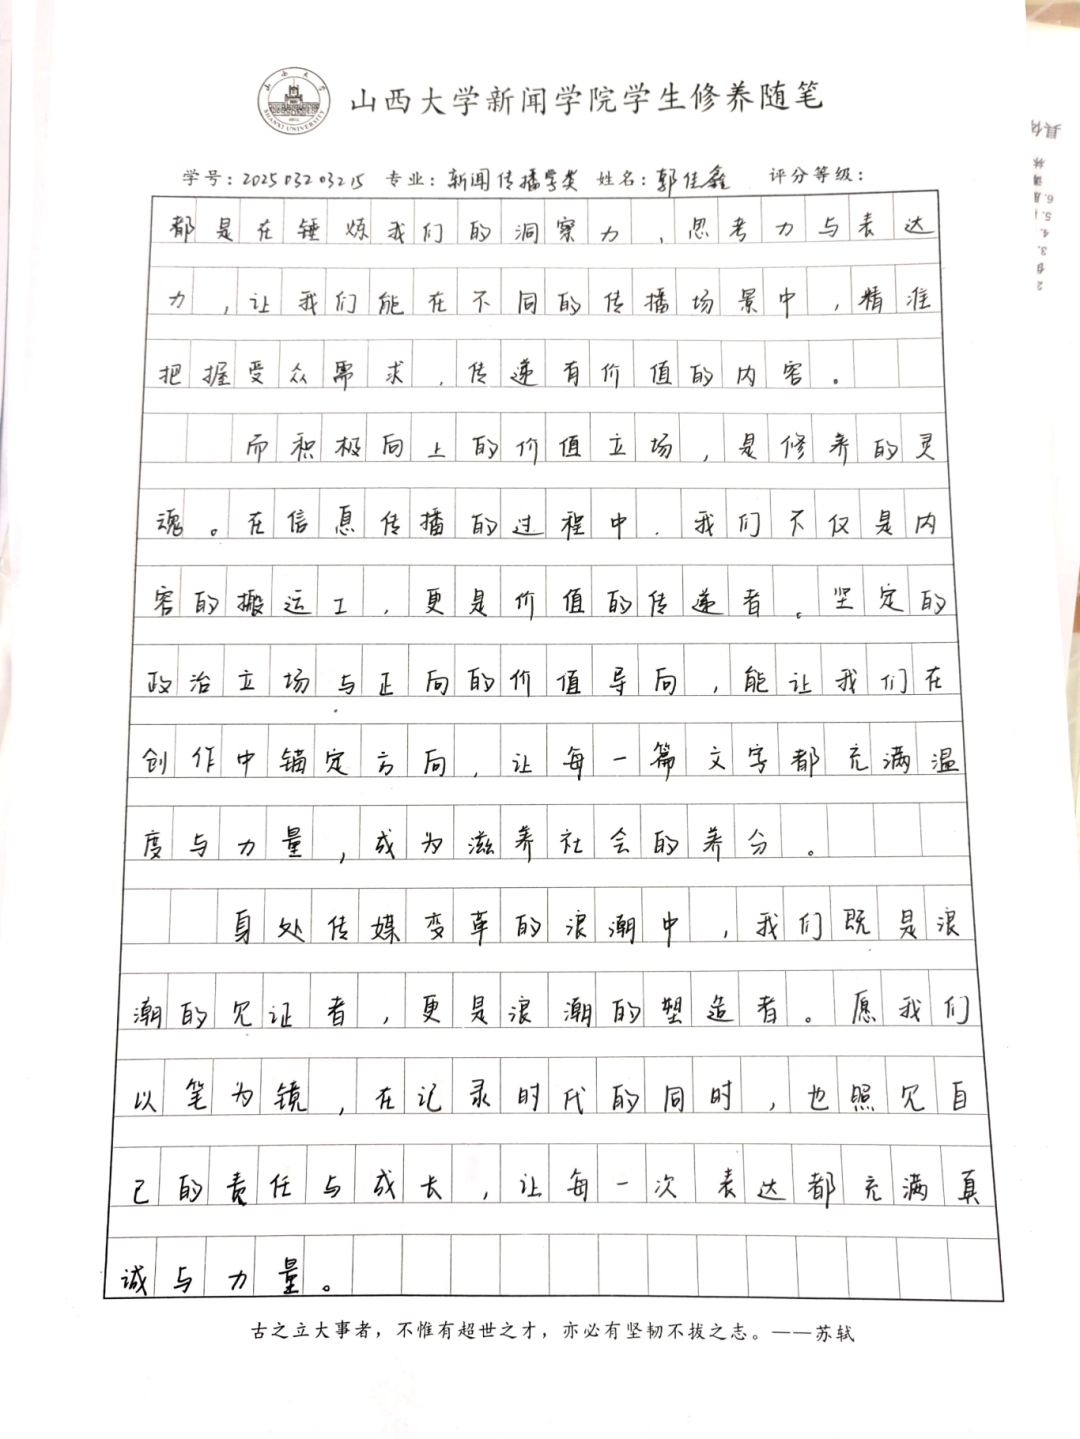 山西大学新闻学院学生修养随笔
学号：202503203215 专业：新闻传播学类 姓名：郭佳鑫 评分等级：
都是在锤炼我们的洞察力，思考力与表达
力，让我们能在不同的传播场景中，精准
把握受众需求，传递有价值的内容。
而积极向上的价值立场，是修养的灵
魂。在信息传播的过程中，我们不仅是内
容的搬运工，更是价值的传递者。坚定的
政治立场与正向的价值导向，能让我们在
创作中锚定方向，让每一篇文字都充满温
度与力量，成为滋养社会的养分。
身处传媒变革的浪潮中，我们既是浪
潮的见证者，更是浪潮的塑造者。愿我们
以笔为镜，在记录时代的同时，也照见自
己的责任与成长，让每一次表达都充满真
诚与力量。
古之立大事者，不惟有超世之才，亦必有坚韧不拔之志。——苏轼